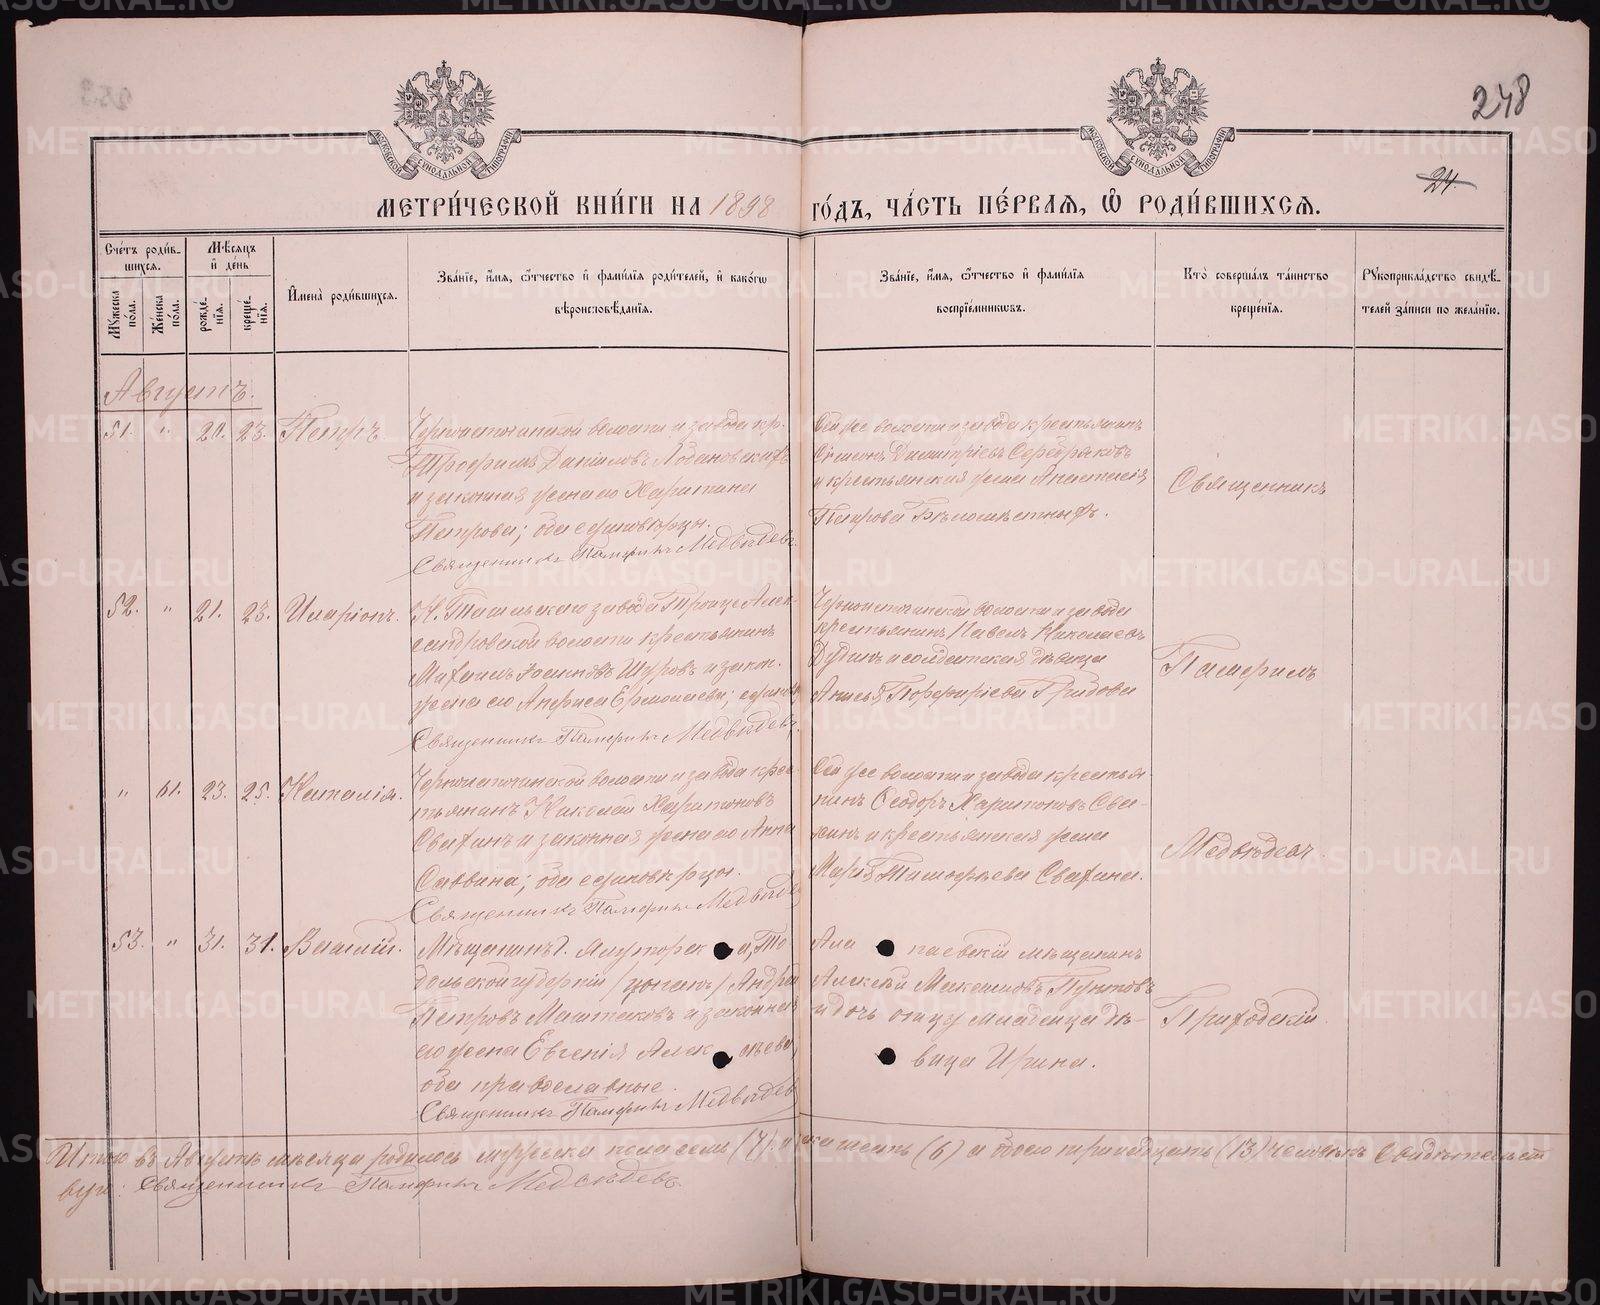 248
24.
МОСКОВСКОЙ СѴНОДАЛЬНОЙ ТИПОГРАФІИ
МОСКОВСКОЙ СѴНОДАЛЬНОЙ ТИПОГРАФІИ
МЕТРИ́ЧЕСКОЙ КНИ́ГИ НА 1898 ГО́ДЪ, ЧА́СТЬ ПЕ́РВАЯ, Ѡ РОДИ́ВШИХСЯ.
Сче́тъ роди́в-
шихся.
Му́жеска по́ла.
Же́нска по́ла.
Мѣ́сяцъ и де́нь
рожде́-
нїя.
креще́-
нїя.
И́мена роди́вшихся.
Зва́нїе, и́мя, о́тчество и фами́лїя роди́телей, и како́гѡ
вѣроисповѣ́данїя.
Зва́нїе, и́мя, о́тчество и фами́лїя
воспрїе́мникѡвъ.
Кто̀ соверша́лъ та́инство
креще́нїя.
Рꙋкоприкла́дство свидѣ́-
телей за́писи по жела́нїю.
Августъ.
51. " 20. 23. Петръ
Черноисточинской волости и завода кр.
Трофимъ Даніиловъ
и законная жена его Харитина
Петрова; оба единоверцы.
Священникъ Памфилъ Медвѣдевъ.
Той же волости и завода крестьянинъ
Симеонъ Димитріевъ Серебряковъ
и крестьянская жена Анастасія
Петрова
Священникъ
52. " 21. 23. Иларіонъ.
Н. Тагильскаго завода Троице Алек-
сандровской волости крестьянинъ
Михаилъ Іоанновъ Шуровъ и закон.
жена его Анфиса Ермолаева;
Священникъ Памфилъ Медвѣдевъ.
Черноисточинской волости и завода
крестьянинъ Павелъ Николаевъ
и солдатская дѣвица
Анисья Порфиріева Гридова
Памфилъ
" 61. 23. 25. Наталія.
Черноисточинской волости и завода крес-
тьянинъ Николай Харитоновъ
Свахинъ и законная жена его Анна
Саввина; оба единоверцы.
Священникъ Памфилъ Медвѣдевъ
Той же волости и завода крестья-
нинъ Ѳеодоръ Харитоновъ Сва-
хинъ и крестьянская жена
Марія Тимофеева Свахина.
Медвѣдевъ
53. " 31. 31. Василій.
Мѣщанинъ г. Ялуторск а, То
больской губерніи (цыганъ) Андрей
Петровъ Маштаковъ и законная
его жена Евгенія Алек ѣева;
оба православные.
Священникъ Памфилъ Медвѣдевъ
Ала паевскій мѣщанинъ
Алексѣй Максимовъ
и дочь отцу младенца дѣ-
вица Ирина.
Приходскій
Итого въ Августѣ мѣсяцѣ родилось мужеска пола семь (7) и женска шесть (6) а обоего тринадцать (13) человѣкъ Свидѣтельст
вую: Священникъ Памфилъ Медвѣдевъ.
METRIKI.GASO-URAL.RU